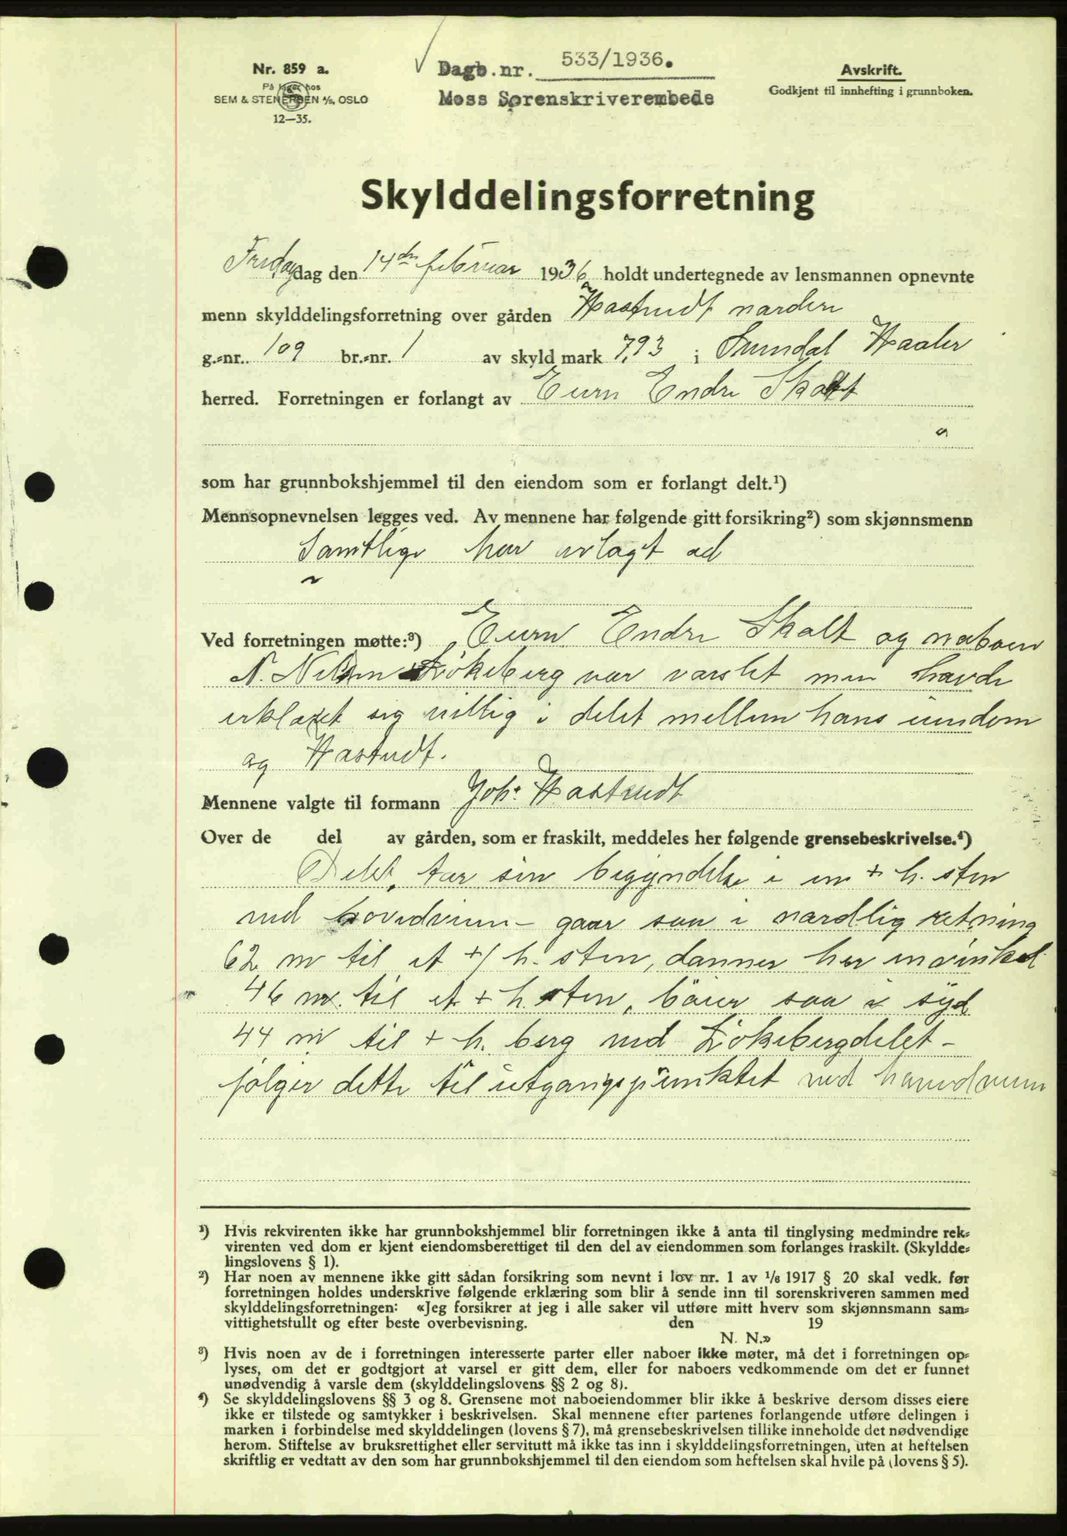 Nr. 859 a.
På lager hos
SEM & STENERSEN A/S, OSLO
12—35.
Dagb.nr. 533/1936.
Moss Sorenskriverembede
Avskrift.
Godkjent til innhefting i grunnboken.
Skylddelingsforretning
Fredag dag den 14de februar 1936 holdt undertegnede av lensmannen opnevnte
menn skylddelingsforretning over gården Hastrudt nordre
g.-nr. 109 br.-nr. 1 av skyld mark 7,93 i Svindal Haaler
herred. Forretningen er forlangt av Endre Skolt
som har grunnbokshjemmel til den eiendom som er forlangt delt.¹)
Mennsopnevnelsen legges ved. Av mennene har følgende gitt forsikring²) som skjønnsmenn
Samtlige har avlagt ed
Ved forretningen møtte:³) Endre Skolt og naboen
N. Nilsen Løkeberg var varslet men havde
erklæret sig villig i delet mellem hans eiendom
og Hastrudt.
Mennene valgte til formann Joh. Hastrudt
Over de del av gården, som er fraskilt, meddeles her følgende grensebeskrivelse.⁴)
Delet tar sin begyndelse i en + h. sten
ved hovedveien – gaar saa i nordlig retning
62 m til et + h. sten, danner her en vinkel
46 m. til et + h. sten, böier saa i syd
44 m til + h. berg ved Lökebergdelet –
følger dette til utgangspunktet ved hovedveien
¹) Hvis rekvirenten ikke har grunnbokshjemmel blir forretningen ikke å anta til tinglysing medmindre rek-
virenten ved dom er kjent eiendomsberettiget til den del av eiendommen som forlanges fraskilt. (Skyldde-
lingslovens § 1).
²) Har noen av mennene ikke gitt sådan forsikring som nevnt i lov nr. 1 av 1/6 1917 § 20 skal vedk. før
forretningen holdes underskrive følgende erklæring som blir å sende inn til sorenskriveren sammen med
skylddelingsforretningen: «Jeg forsikrer at jeg i alle saker vil utføre mitt hverv som skjønnsmann sam-
vittighetsfullt og efter beste overbevisning. den 19
N. N.»
³) Hvis noen av de i forretningen interesserte parter eller naboer ikke møter, må det i forretningen op-
lyses, om det er godtgjort at varsel er gitt dem, eller for naboers vedkommende om det er funnet
unødvendig å varsle dem (skylddelingslovens §§ 2 og 8).
⁴) Se skylddelingslovens §§ 3 og 8. Grensene mot naboeiendommer blir ikke å beskrive dersom disses eiere
ikke er tilstede og samtykker i beskrivelsen. Skal mennene efter partenes forlangende utføre delingen i
marken i forbindelse med skylddelingen (lovens § 7), må grensebeskrivelsen tillike inneholde det nødvendige
herom. Stiftelse av bruksrettighet eller servitutt må ikke tas inn i skylddelingsforretningen, uten at heftelsen
skriftlig er vedtatt av den som har grunnbokshjemmel til den eiendom som heftelsen skal hvile på (lovens § 5).